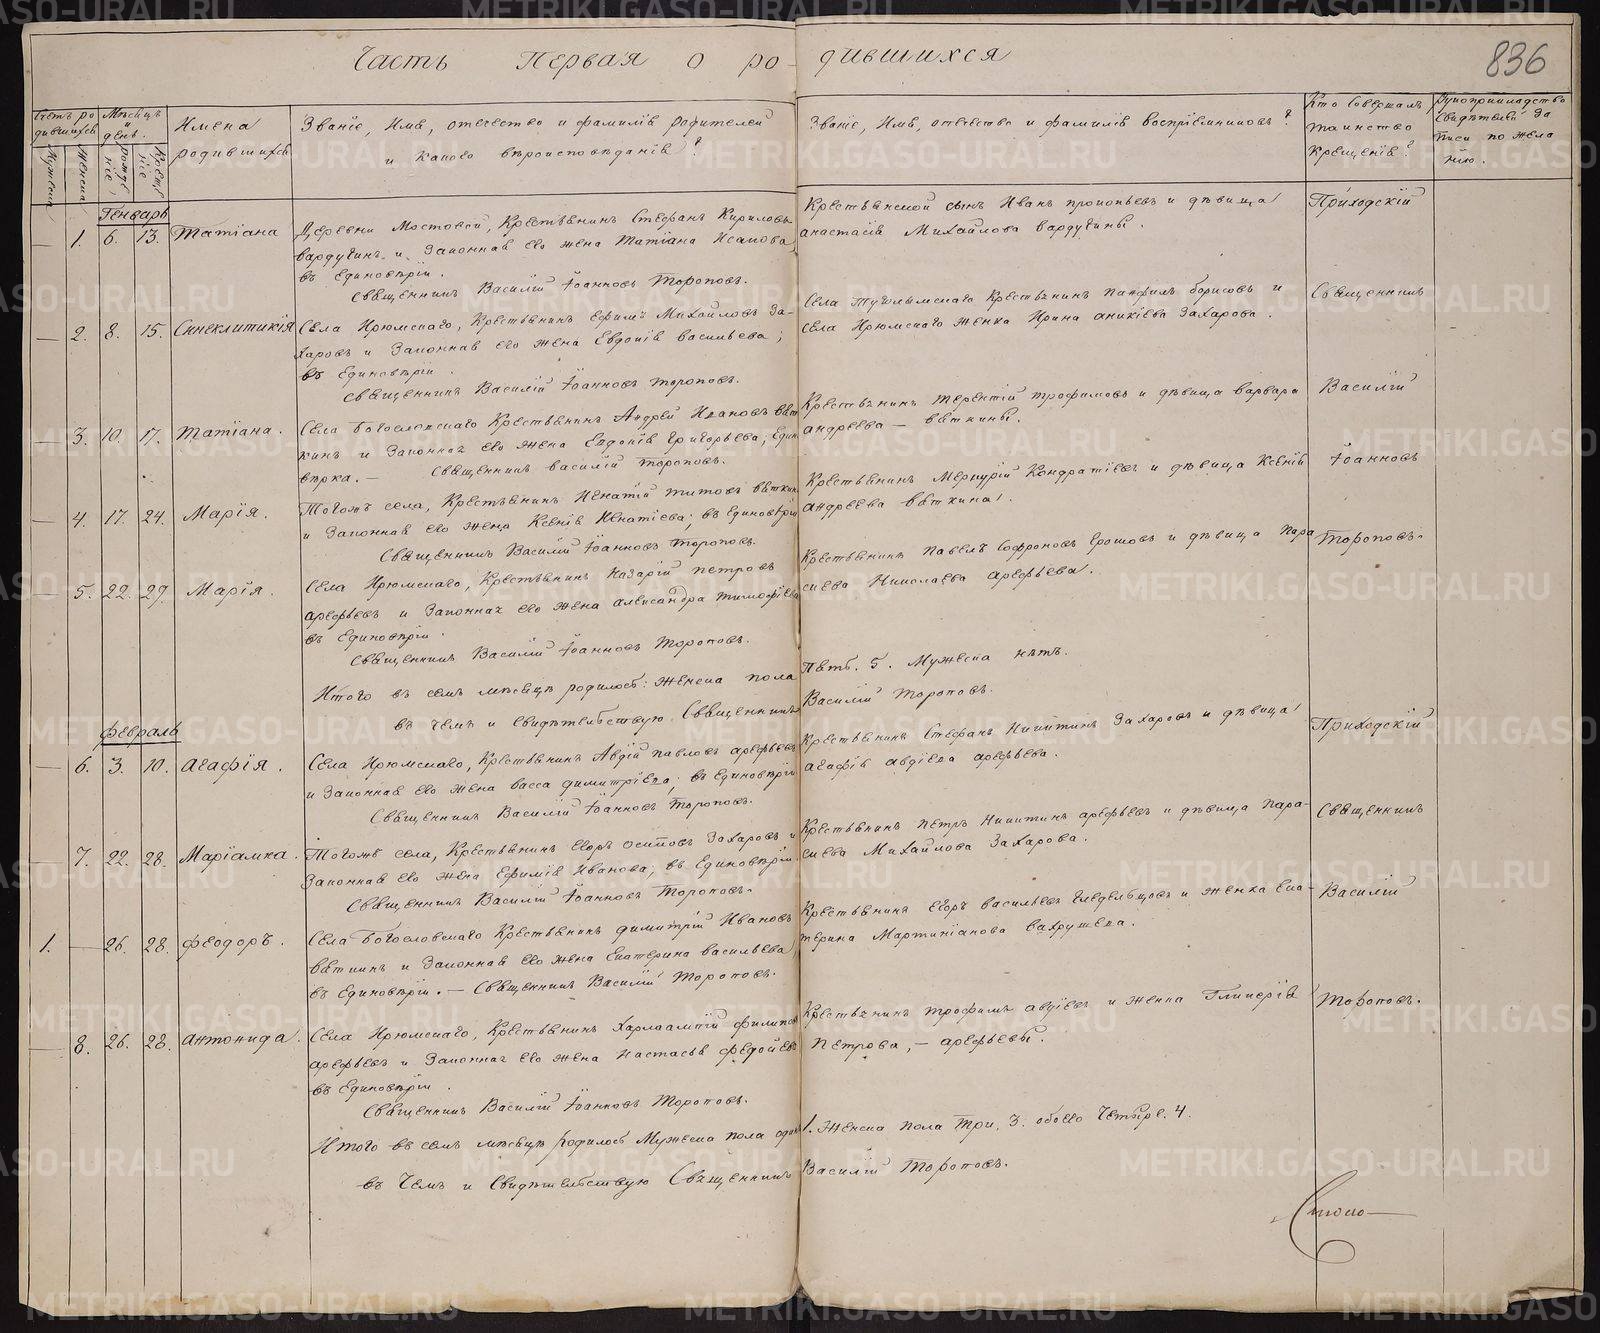 Часть Первая о родившихся
836
Счетъ родившихся
Мужеска
Женска
Мѣсяцъ и день.
Рожденіе
Крещеніе
Имена родившихся
Званіе, Имя, отечество и фамилія родителей
и какого вѣроисповѣданія?
Званіе, Имя, отечество и фамилія воспріемниковъ?
Кто совершалъ
таинство
крещенія?
Рукоприкладство
Свидѣтелей за
писи по жела
нію.
Генварь
— 1. 6. 13. Татіана
Деревни Мостовой, Крестьянинъ Стефанъ Кириловъ
Вардугинъ и Законная его жена Татіана Исакова
въ Единовѣріи.
Священникъ Василій Іоанновъ Тороповъ.
Крестьянской сынъ Иванъ прокопьевъ и дѣвица
анастасія Михайлова Вардугины.
Приходскій
— 2. 8. 15. Синклитикія
Села Ирюмскаго, Крестьянинъ Ефимъ Михайловъ За-
харовъ и Законная его жена Евдокія васильева;
въ Единовѣріи.
Священникъ Василій Іоанновъ Тороповъ.
Крестьянинъ Панфилъ борисовъ и
села Ирюмскаго женка Ирина аникіева Захарова.
Священникъ
— 3. 10. 17. Татіана.
Села Богословскаго Крестьянинъ Андрей Ивановъ Вят
кинъ и Законная его жена Евдокія григорьева; Един
вѣрка. — Священникъ василій Тороповъ.
Крестьянинъ терентій трофимовъ и дѣвица варвара
андреева — вяткины.
Василій
— 4. 17. 24. Марія.
Тогожъ села, Крестьянинъ Игнатій титовъ вяткин
и Законная его жена Ксенія Игнатіева; въ Единовѣріи
Священникъ Василій Іоанновъ Тороповъ.
Крестьянинъ Меркурій Кондратіевъ и дѣвица Ксенія
андреева вяткина.
Іоанновъ
— 5. 22. 29. Марія.
Села Ирюмскаго, Крестьянинъ Назарій петровъ
арефьевъ и Законная его жена александра тимофіева
въ Единовѣріи.
Священникъ Василій Іоанновъ Тороповъ.
Крестьянинъ Павелъ Софроновъ Ершовъ и дѣвица Пара
скева Николаева арефьева.
Тороповъ.
Итого въ семъ мѣсяцѣ родилось: женска пола
Пять. 5. Мужеска нѣтъ.
въ чемъ и Свидѣтельствую Священникъ
Василій Тороповъ.
Февраль
— 6. 3. 10. Агафія.
Села Ирюмскаго, Крестьянинъ Авдій павловъ арефьевъ
и Законная его жена васса димитріева; въ Единовѣріи
Священникъ Василій Іоанновъ Тороповъ.
Крестьянинъ Стефанъ Никитинъ Захаровъ и дѣвица
агафія авдіева арефьева.
Приходскій
— 7. 22. 28. Маріамна.
Тогожъ села, Крестьянинъ Егоръ осиповъ Захаровъ и
Законная его жена Ефимія Иванова; въ Единовѣріи.
Священникъ Василій Іоанновъ Тороповъ.
Крестьянинъ Петръ Никитинъ арефьевъ и дѣвица Пара-
скева Михайлова Захарова.
Священникъ
1. — 26. 28. Феодоръ.
Села Богословскаго Крестьянинъ димитрій Ивановъ
вяткинъ и Законная его жена Екатерина васильева
въ Единовѣріи. — Священникъ Василій Тороповъ.
Крестьянинъ Егоръ васильевъ и женка Ека-
терина Мартиніанова вахрушева.
Василій
— 8. 26. 28. антонида.
Села Ирюмскаго, Крестьянинъ Харлампій филипов
арефьевъ и Законная его жена Настасья
въ Единовѣріи.
Священникъ Василій Іоанновъ Тороповъ.
Крестьянинъ трофимъ авдіевъ и женка Гликерія
Петрова, — арефьевы.
Тороповъ.
Итого въ семъ мѣсяцѣ родилось Мужеска пола один
1. Женска пола три, 3. обоего Четыре. 4.
въ Чемъ и Свидѣтельствую Священникъ
Василій Тороповъ.
METRIKI.GASO-URAL.RU